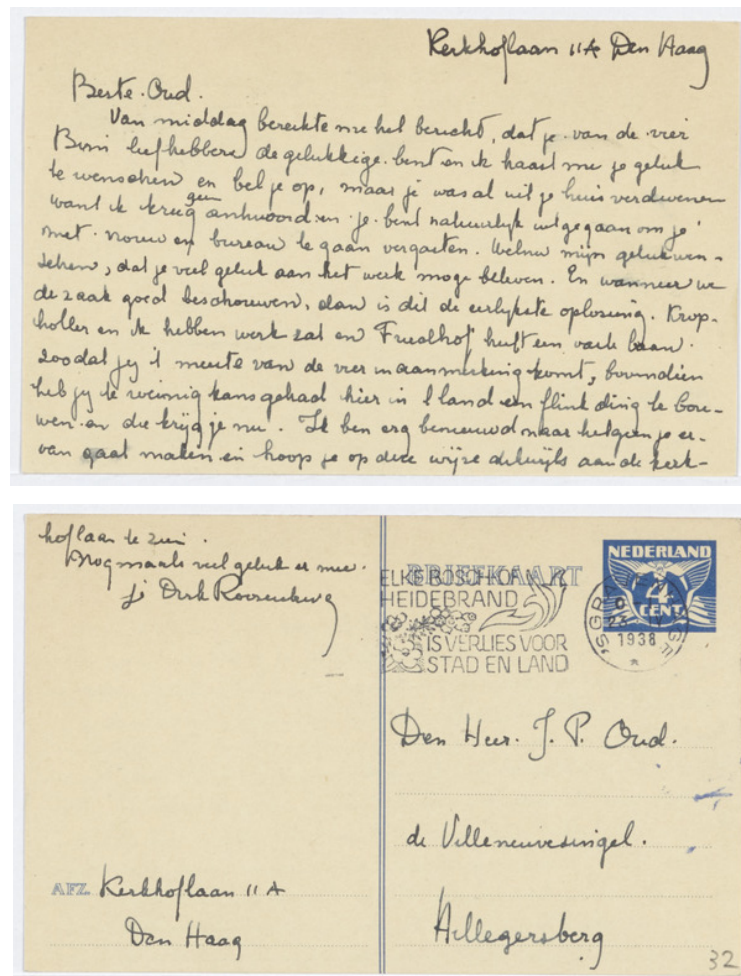 Kerkhoflaan 11A Den Haag
Beste Oud.
Van middag bereikte me het bericht, dat je van de vier
Bims liefhebbers de gelukkige bent en ik haast me je geluk
te wenschen en bel je op, maar je was al uit je huis verdwenen
want ik kreeg geen antwoord en je bent natuurlijk uitgegaan om je
met vrouw en bureau te gaan vergasten. Welnu mijn gelukwen-
schen, dat je veel geluk aan het werk moge beleven. En wanneer we
de zaak goed beschouwen, dan is dit de eerlijkste oplossing. Krop-
holler en ik hebben werk zat en Friedhof heeft een vaste baan.
zoodat jij 't meeste van de vier in aanmerking komt, bovendien
heb jij te weinig kans gehad hier in 't land een flink ding te bou-
wen en die krijg je nu. Ik ben erg benieuwd naar hetgeen je er-
van gaat maken en hoop je op deze wijze dikwijls aan de kerk-
hoflaan te zien.
Nogmaals veel geluk er mee.
Dirk Roosenburg
BRIEFKAART
NEDERLAND
4
CENT
ELKE BOSCH- OF
HEIDEBRAND
IS VERLIES VOOR
STAD EN LAND
'SGRAVENHAGE
23 IV
1938
Den Heer. J. P. Oud.
de Villeneuvesingel.
Hillegersberg
AFZ. Kerkhoflaan 11A
Den Haag
32